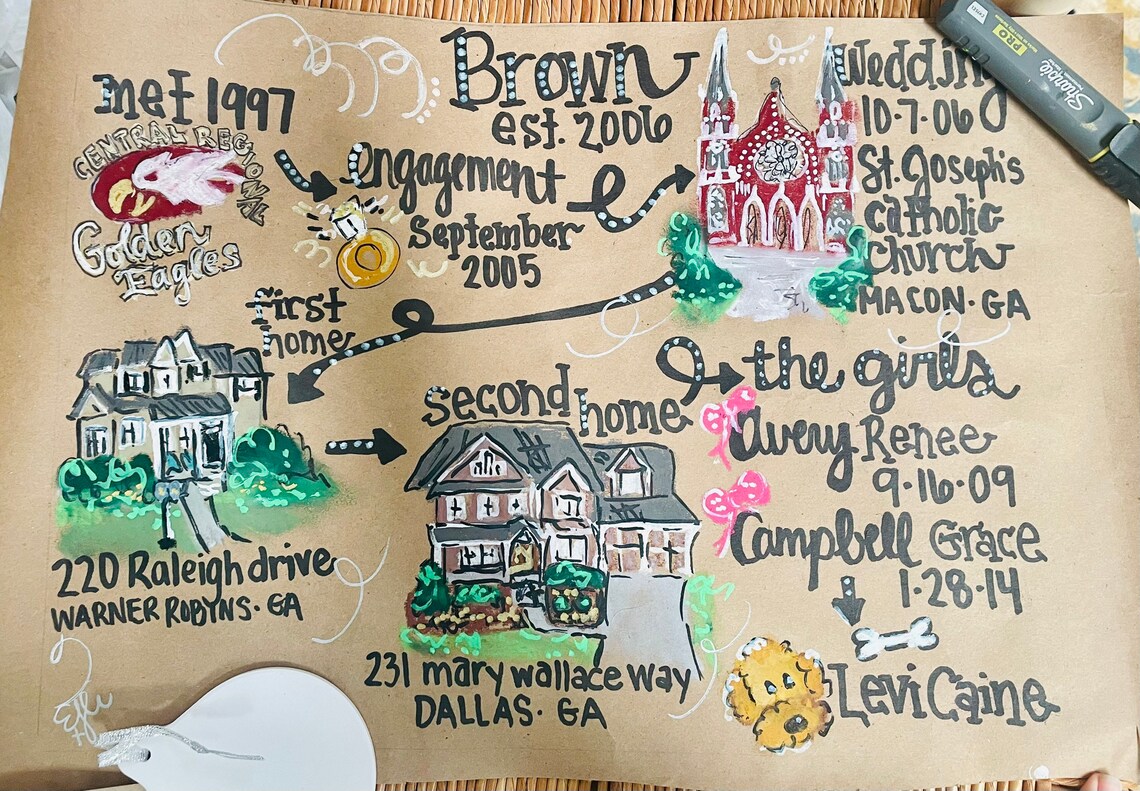 Brown
est. 2006
met 1997
CENTRAL REGIONAL
Golden
Eagles
engagement
September
2005
Wedding
10.7.06
St. Joseph's
Catholic
Church
MACON. GA
first
home
220 Raleigh drive
WARNER ROBYNS. GA
second home
231 mary wallace way
DALLAS. GA
the girls
Avery Renee
9.16.09
Campbell Grace
1.28.14
Levi Caine
Sharpie
PRO